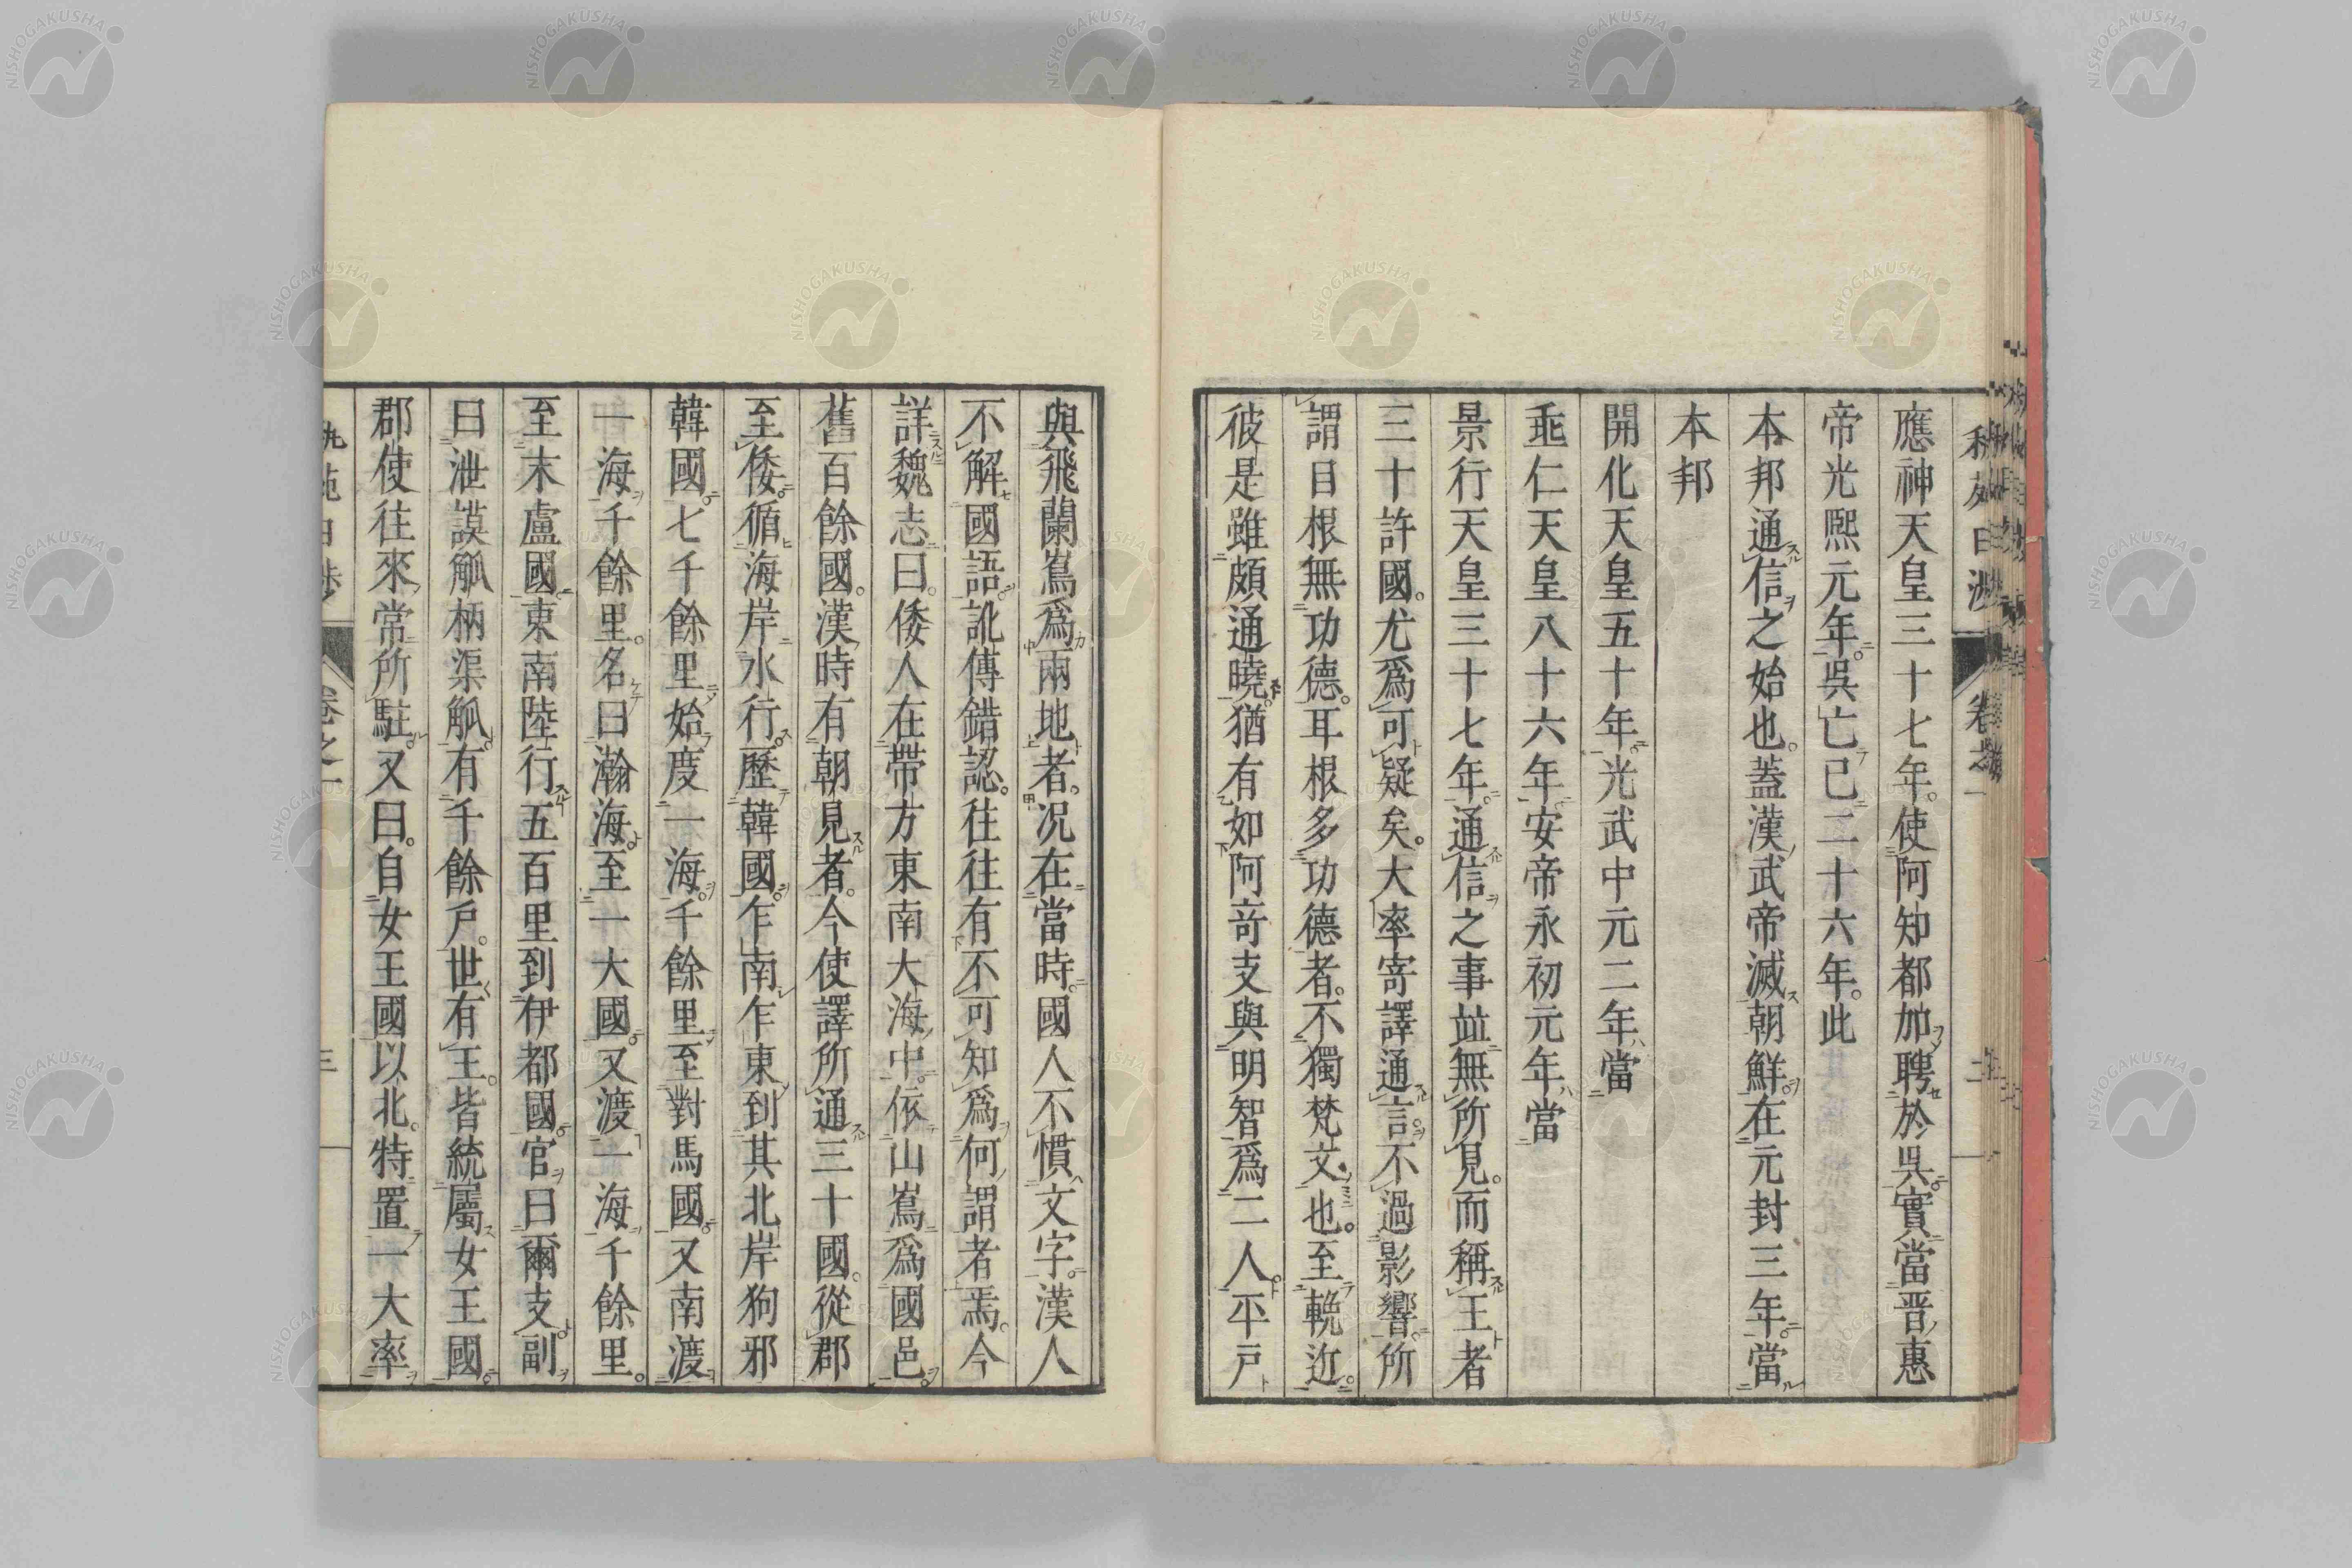 應神天皇三十七年。使阿知都加聘於吳。實當晋惠
帝光熙元年。吳亡已二十六年。此
本邦通信之始也。蓋漢武帝滅朝鮮。在元封三年。當
本邦
開化天皇五十年。光武中元二年當
垂仁天皇八十六年。安帝永初元年當
景行天皇三十七年。通信之事竝無所見。而稱王者
三十許國。尤爲可疑矣。大率寄譯通言。不過影響。所
謂目根無功德。耳根多功德者。不獨梵文也。至輓近。
彼是雖頗通曉。猶有如阿奇支與明智爲二人。平戸
與飛蘭嶌爲兩地者。况在當時。國人不慣文字。漢人
不解國語。訛傳錯認。往往有不可知爲何謂者焉。今
詳魏志曰。倭人在帶方東南大海中。依山嶌爲國邑。
舊百餘國。漢時有朝見者。今使譯所通三十國。從郡
至倭。循海岸水行。歷韓國。乍南乍東。到其北岸狗邪
韓國。七千餘里。始度一海。千餘里。至對馬國。又南渡
一海千餘里。名曰瀚海。至一大國。又渡一海千餘里。
至末盧國。東南陸行五百里到伊都國。官曰爾支。副
曰泄謨觚柄渠觚。有千餘戸。世有王。皆統屬女王國。
郡使往來常所駐。又曰。自女王國以北。特置一大率
卷之一
二
三
NISHOGAKUSHA